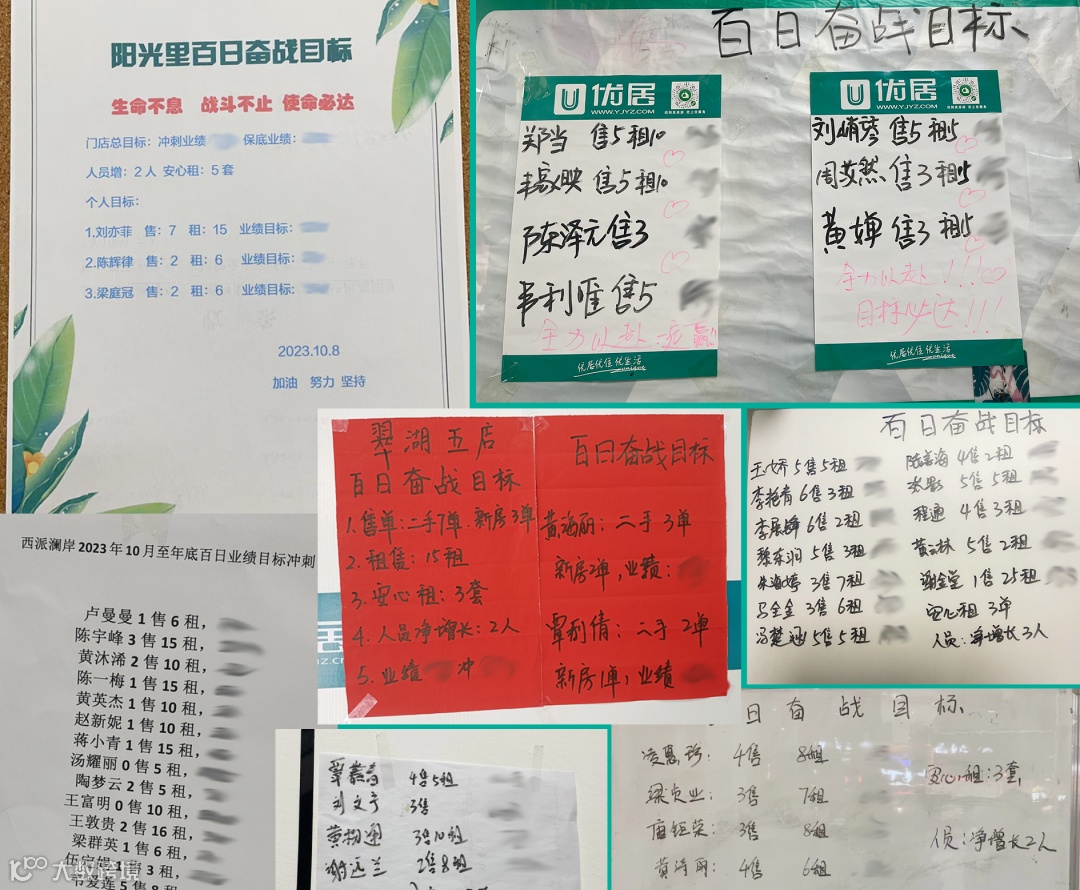 阳光里百日奋战目标
生命不息 战斗不止 使命必达
门店总目标：冲刺业绩 保底业绩：
人员增：2人 安心租：5套
个人目标：
1.刘亦菲 售：7 租：15 业绩目标：
2.陈辉律 售：2 租：6 业绩目标：
3.梁庭冠 售：2 租：6 业绩目标：
2023.10.8
加油 努力 坚持
百日奋战目标
U优居
WWW.YJYZ.COM
郑当 售5租10
售5租10
陈泽元售3
韦利雁售5
全力以赴
优居优住优生活
unique
U优居
WWW.YJYZ.COM
售5租5
售3租5
黄婵售3租5
全力以赴！！！
目标必达！！！
优居优住优生活
unique
翠湖五店
百日奋战目标
1.售单：二手7单.新房3单
2.租赁：15租
3.安心租：3套
4.人员净增长：2人
5.业绩 冲
百日奋战目标
黄海丽：二手3单
新房2单，业绩：
覃利倩：二手2单
新房1单，业绩
百日奋战目标
5售5租
李艳青 6售3租
6售2租
黎东润 5售3租
朱海婷 3售7租
马全金 3售6租
冯楚迦5售5租
4售2租
5售5租
程通 4售3租
5售2租
1售25租
安心租 3单
人员：净增长3人
西派澜岸2023年10月至年底百日业绩目标冲刺
卢曼曼1售6租，
陈宇峰3售15租，
黄沐浠2售10租，
陈一梅1售15租，
黄英杰1售10租，
赵新妮1售10租，
蒋小青1售15租，
汤耀丽0售5租，
陶梦云2售5租，
王富明0售10租，
王敦贵2售16租，
梁群英1售6租，
4售5租
刘文宁 3售
3售10租
谢远兰 2售8租
日奋战目标
凌惠珍：4售 8租
梁贞业：3售 7租
唐钜荣：3售 8租
黄海丽：4售 6租
安心租：3套
人员：净增长2人
大数跨境